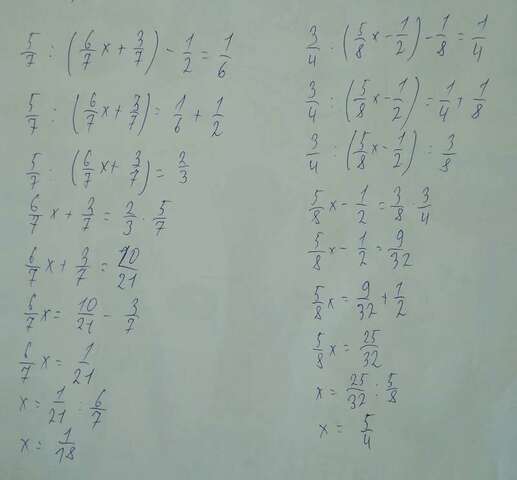 5/7 : (6/7 x + 3/7) - 1/2 = 1/6
5/7 : (6/7 x + 3/7) = 1/6 + 1/2
5/7 : (6/7 x + 3/7) = 2/3
6/7 x + 3/7 = 2/3 · 5/7
6/7 x + 3/7 = 10/21
6/7 x = 10/21 - 3/7
6/7 x = 1/21
x = 1/21 : 6/7
x = 1/18
3/4 : (5/8 x - 1/2) - 1/8 = 1/4
3/4 : (5/8 x - 1/2) = 1/4 + 1/8
3/4 : (5/8 x - 1/2) = 3/8
5/8 x - 1/2 = 3/8 · 3/4
5/8 x - 1/2 = 9/32
5/8 x = 9/32 + 1/2
5/8 x = 25/32
x = 25/32 : 5/8
x = 5/4